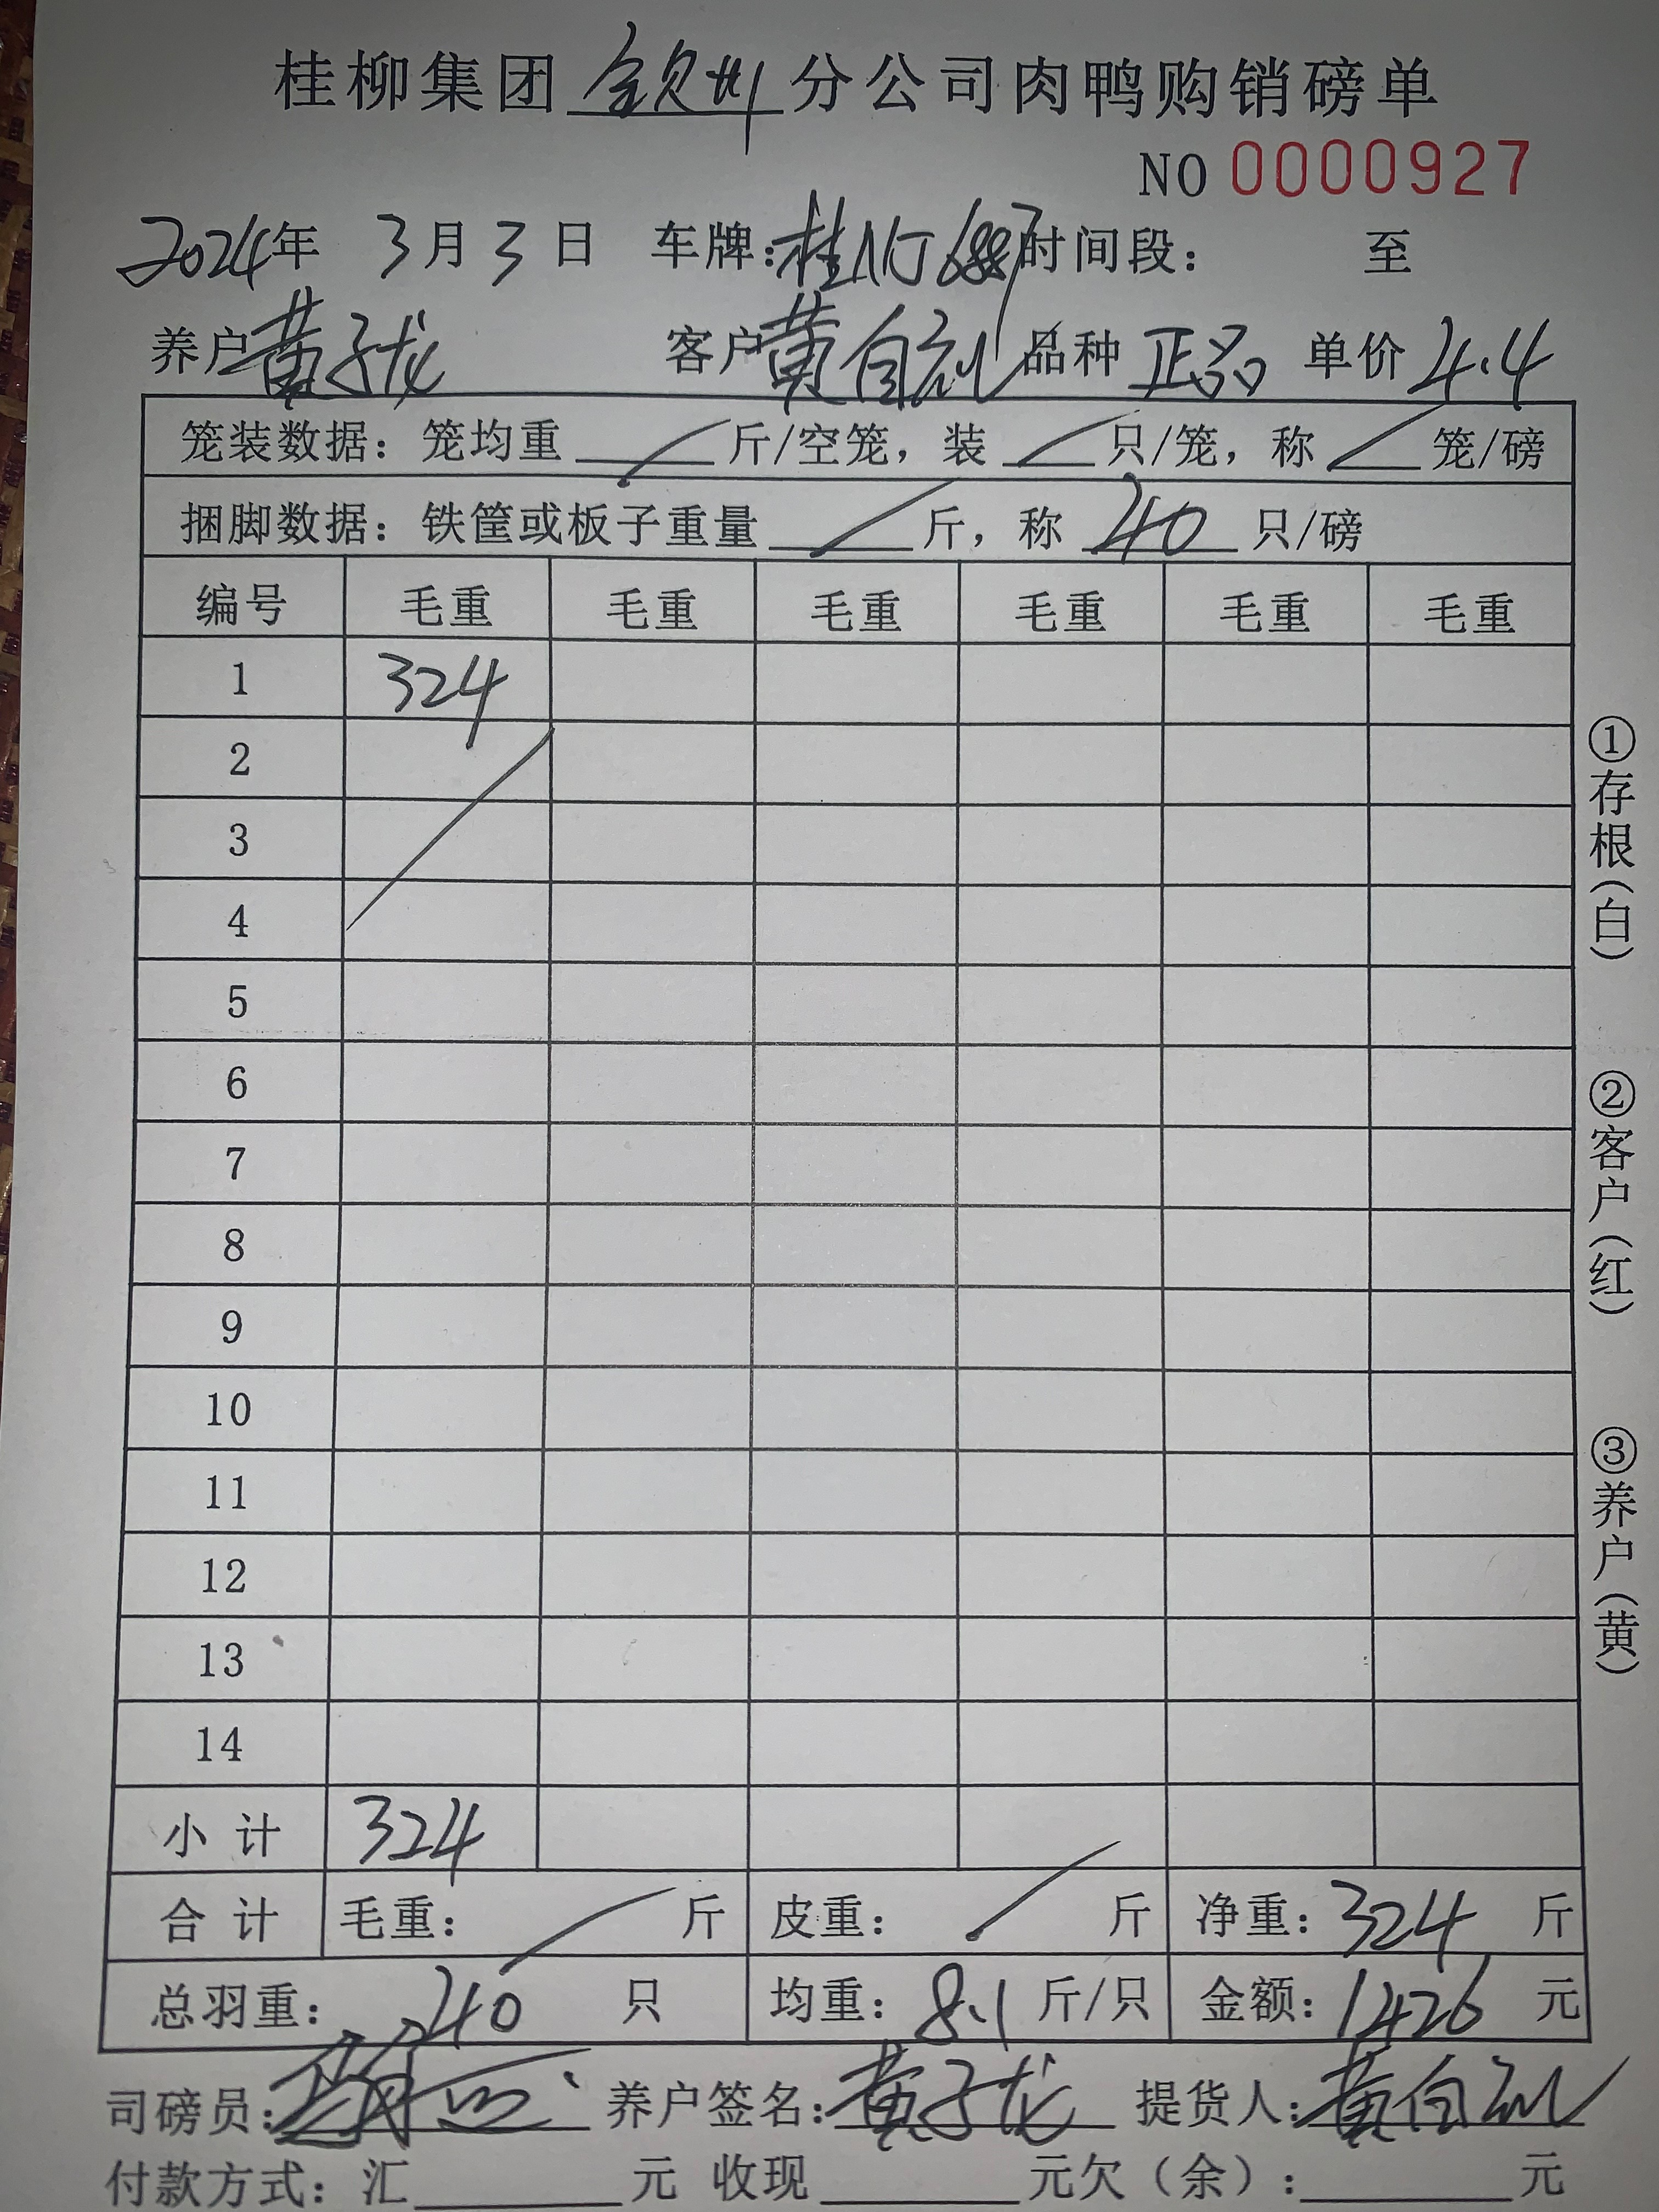 桂柳集团 钦州 分公司肉鸭购销磅单
NO 0000927
2024年 3月3日 车牌：桂N 时间段： 至
养户 黄子龙 客户 黄自 品种 正品 单价 4.4
笼装数据：笼均重 / 斤/空笼，装 / 只/笼，称 / 笼/磅
捆脚数据：铁筐或板子重量 / 斤，称 40 只/磅
编号 毛重 毛重 毛重 毛重 毛重 毛重
1 324
2
3
4
5
6
7
8
9
10
11
12
13
14
小计 324
合计 毛重： / 斤 皮重： / 斤 净重：324 斤
总羽重： 40 只 均重：8.1 斤/只 金额：1426 元
司磅员： 养户签名：黄子龙 提货人：黄自
付款方式：汇 元 收现 元欠（余）： 元
①存根（白）
②客户（红）
③养户（黄）